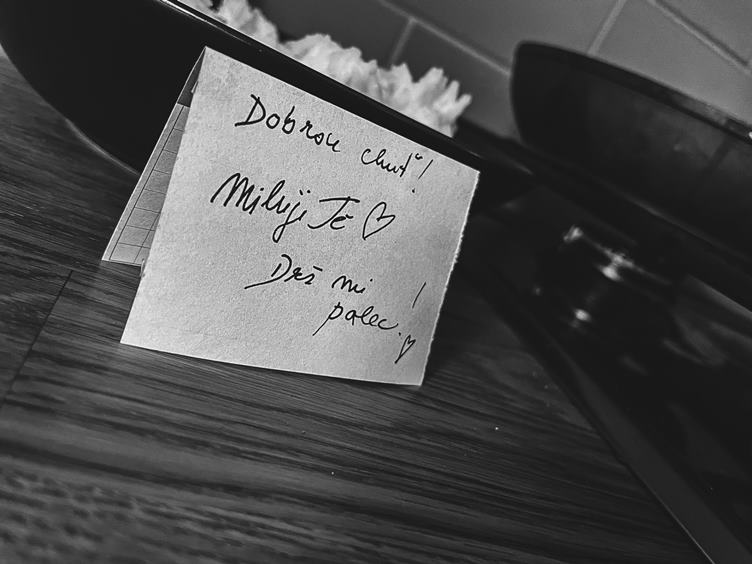 Dobrou chuť!
Miluji Tě ♡
Drž mi
palec! ♡